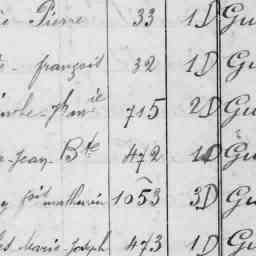 Pierre 33 1D Gu
françois 32 1D Gu
715 2D Gu
Jean-Bte 472 1D Gu
1053 3D Gu
Marie-Joseph 473 1D Gu